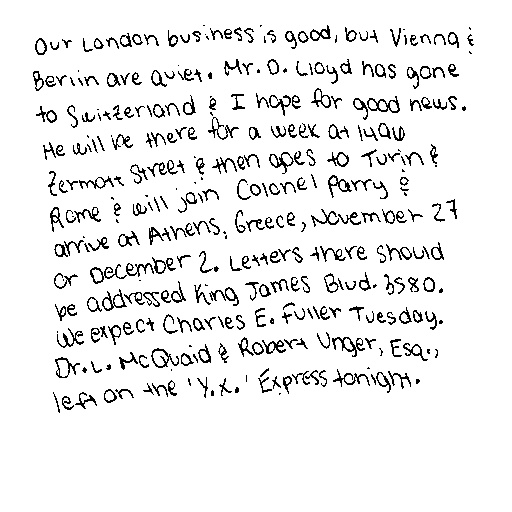 Our London business is good, but Vienna &
Berlin are quiet. Mr. D. Lloyd has gone
to Switzerland & I hope for good news.
He will be there for a week at 1496
Zermott Street & then goes to Turin &
Rome & will join Colonel Parry &
arrive at Athens, Greece, November 27
or December 2. Letters there should
be addressed King James Blvd. 3580.
We expect Charles E. Fuller Tuesday.
Dr. L. McQuaid & Robert Unger, Esq.,
left on the 'Y.X.' Express tonight.